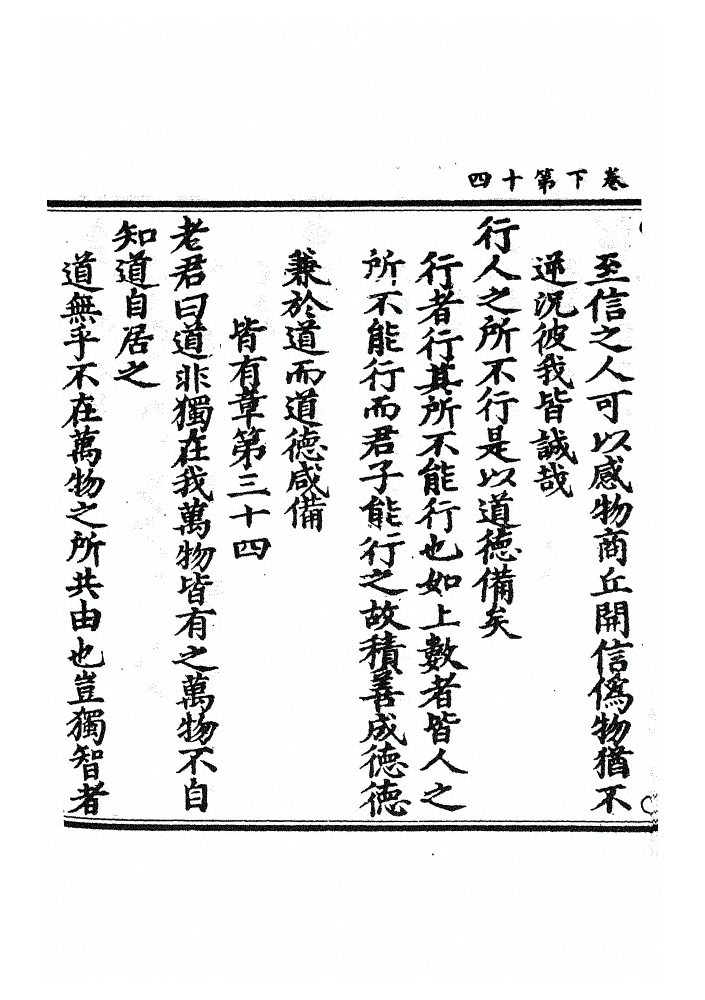 卷下第十四
至信之人可以感物商丘開信僞物猶不
逆況彼我皆誠哉
行人之所不行是以道德備矣
行者行其所不能行也如上數者皆人之
所不能行而君子能行之故積善成德德
兼於道而道德咸備
皆有章第三十四
老君曰道非獨在我萬物皆有之萬物不自
知道自居之
道無乎不在萬物之所共由也豈獨智者